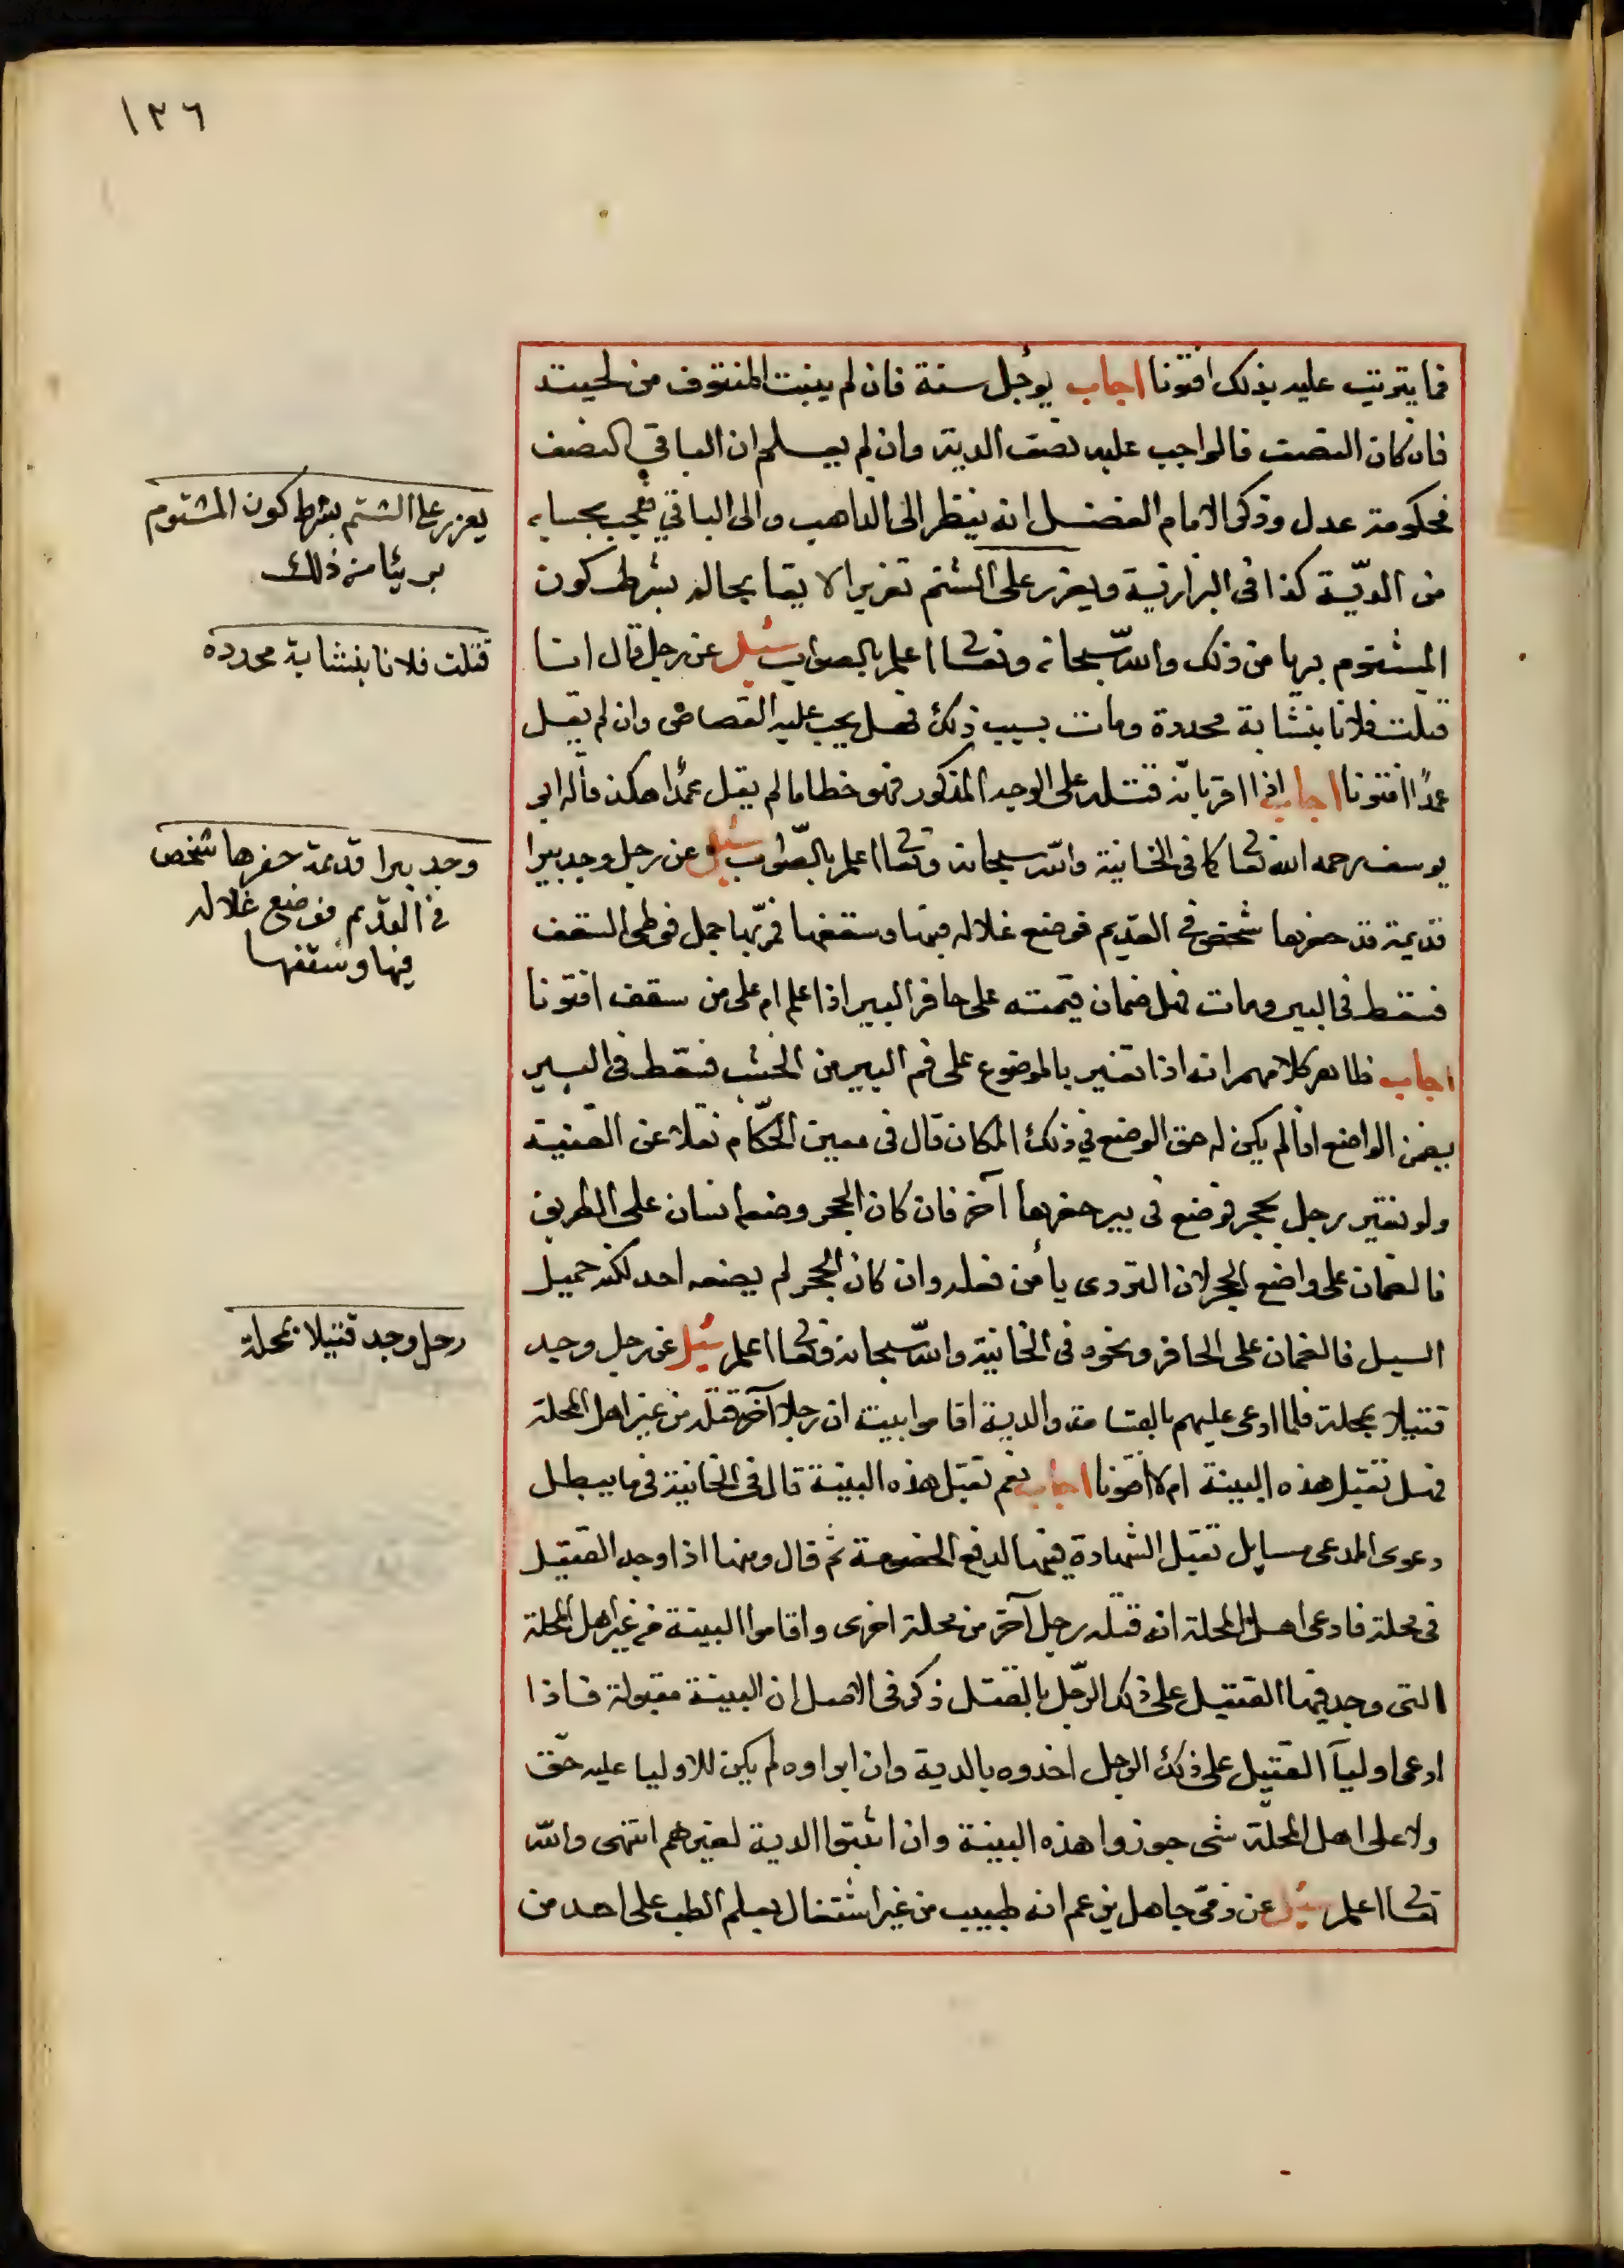 ١٣٦
فما يترتب عليه بذلك افتونا اجاب يؤجل سنة فان لم ينبت المنتوف من لحيته
فان كان النصف فالواجب عليه نصف الدية وان لم يعلم ان الباقي كنصف
فحكومة عدل وذكر الامام الفضل انه ينظر الى الذاهب والى الباقي فيجب بحسابه
من الديّة كذا في البزازية ويعزر على الشتم تعزيرا لايقا بحاله بشرط كون
المشتوم بريا من ذلك والله سبحانه وتعالى اعلم بالصواب سئل عن رجل قال انا
قتلت فلانا بنشابة محددة ومات بسبب ذلك فهل يجب عليه القصاص وان لم يقل
عمدًا افتونا اجاب اذا اقر بانه قتله على الوجه المذكور فهو خطا ما لم يقل عمدًا هكذا قاله ابو
يوسف رحمه الله تعالى كما في الخانية والله سبحانه وتعالى اعلم بالصّواب سئل عن رجل وجد بيرا
قديمة قد حفرها شخص في القديم فوضع غلاله فيها وسقفها فمرّ بها جمل فوطى السقف
فسقط في البير ومات فهل ضمان قيمته على حافر البير اذا علم ام على من سقف افتونا
اجاب ظاهر كلامهم انه اذا تعثر بالموضوع على فم البير من الخشب فسقط في البير
يضمن الواضع اذا لم يكن له حق الوضع في ذلك المكان قال في معين الحكّام نقلا عن القنية
ولو تعثر رجل بحجر فوضع في بير حفرها آخر فان كان الحجر وضعه انسان على الطريق
فالضمان على واضع الحجر لان التردى يأمن فعله وان كان الحجر لم يضعه احد لكنه حميل
السيل فالضمان على الحافر ونحوه في الخانية والله سبحانه وتعالى اعلم سئل عن رجل وجد
قتيلا بمحلة فلما ادعى عليهم بالقسامة والدية اقاموا بينة ان رجلا آخر قتله من غير اهل المحلة
فهل تقبل هذه البينة ام لا افتونا اجاب نعم تقبل هذه البينة قال في الخانية في ما يبطل
دعوى المدعى مسايل تقبل الشهادة فيها لدفع الخصومة ثم قال ومنها اذا وجد القتيل
في محلة فادعى اهل المحلة انه قتله رجل آخر من محلة اخرى واقاموا البينة من غير اهل المحلة
التى وجد فيها القتيل على ذلك الرّجل بالقتل ذكر في الاصل ان البينة مقبولة فاذا
ادعى اوليآ القتيل على ذلك الرجل اخذوه بالدية وان ابراوه لم يكن للاوليا عليه حق
ولا على اهل المحلّة شى جوزوا هذه البينة وان اثبتوا الدية لغيرهم انتهى والله
تعالى اعلم سئل عن ذمّى جاهل يزعم انه طبيب من غير اشتغال بعلم الطب على احد من
يعزر على الشتم بشرط كون المشتوم
بريئا من ذلك
قتلت فلانا بنشابة محدده
وجد بيرا قديمة حفرها شخص
في القديم فوضع غلاله
فيها وسقفها
رجل وجد قتيلا بمحلة